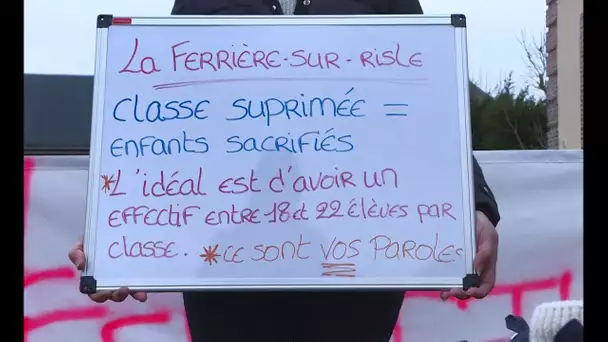 La Ferrière-sur-risle
classe suprimée =
enfants sacrifiés
*L'idéal est d'avoir un
effectif entre 18 et 22 élèves par
classe. *ce sont vos paroles